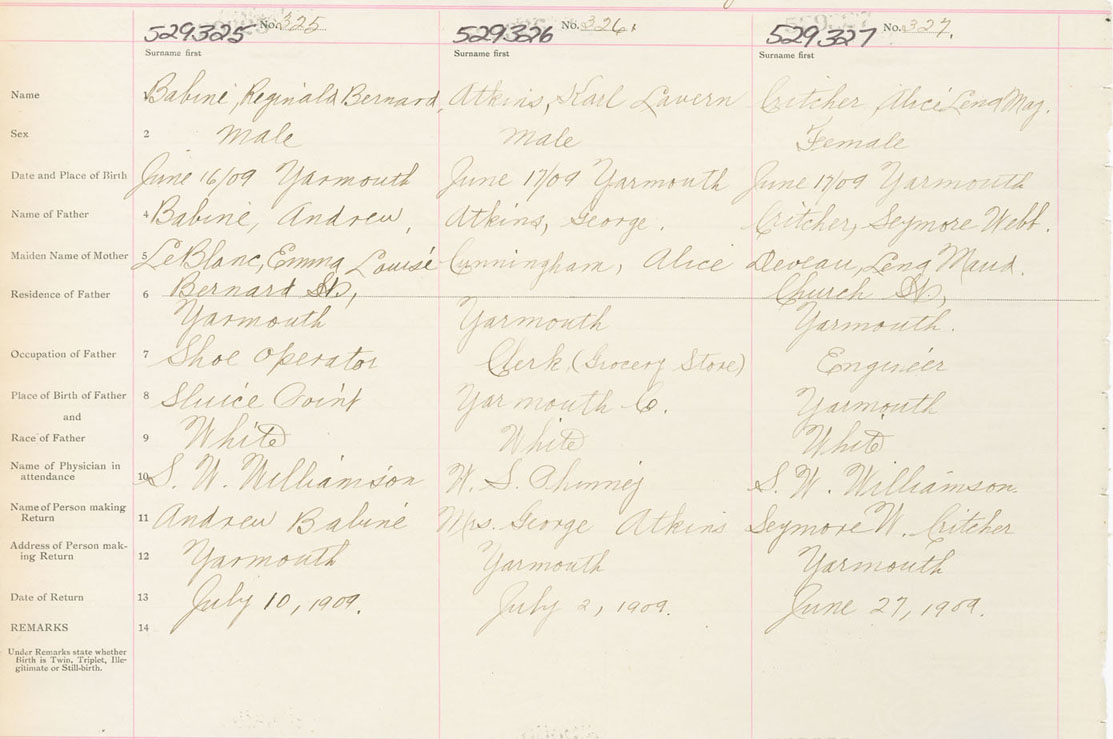 529325 No. 325 529326 No. 326. 529327 No. 327.
Surname first Surname first Surname first
Name 1 Babine, Reginald Bernard, Atkins, Karl Lavern Critcher, Alice Lena May.
Sex 2 Male Male Female
Date and Place of Birth June 16/09 Yarmouth June 17/09 Yarmouth June 17/09 Yarmouth
Name of Father 4 Babine, Andrew, Atkins, George. Critcher, Seymore Webb.
Maiden Name of Mother 5 LeBlanc, Emma Louise Cunningham, Alice Deveau, Lena Maud.
Residence of Father 6 Bernard St, Church St,
Yarmouth Yarmouth Yarmouth.
Occupation of Father 7 Shoe Operator Clerk (Grocery Store) Engineer
Place of Birth of Father 8 Sluice Point Yarmouth Co. Yarmouth
and
Race of Father 9 White White White
Name of Physician in
attendance 10 S. W. Williamson W. S. Phinney S. W. Williamson.
Name of Person making
Return 11 Andrew Babine Mrs. George Atkins Seymore W. Critcher
Address of Person mak-
ing Return 12 Yarmouth Yarmouth Yarmouth
Date of Return 13 July 10, 1909. July 2, 1909. June 27, 1909.
REMARKS 14
Under Remarks state whether
Birth is Twin, Triplet, Ille-
gitimate or Still-birth.